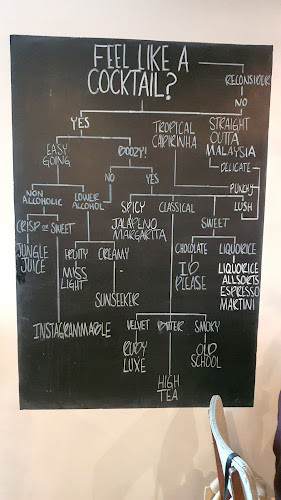 FEEL LIKE A
COCKTAIL?
RECONSIDER
NO
YES
TROPICAL
CAPIRINHA
STRAIGHT
OUTTA
MALAYSIA
EASY
GOING
BOOZY!
DELICATE
NO
YES
PUNCHY
LUSH
NON
ALCOHOLIC
LOWER
ALCOHOL
SPICY
CLASSICAL
SWEET
CRISP OR SWEET
JALAPENO
MARGARITA
JUNGLE
JUICE
FRUITY
CREAMY
CHOCOLATE
LIQUORICE
MISS
LIGHT
PLEASE
LIQUORICE
ALLSORTS
ESPRESSO
MARTINI
SUNSEEKER
INSTAGRAMMABLE
VELVET
BITTER
SMOKY
RUBY
LUXE
OLD
SCHOOL
HIGH
TEA